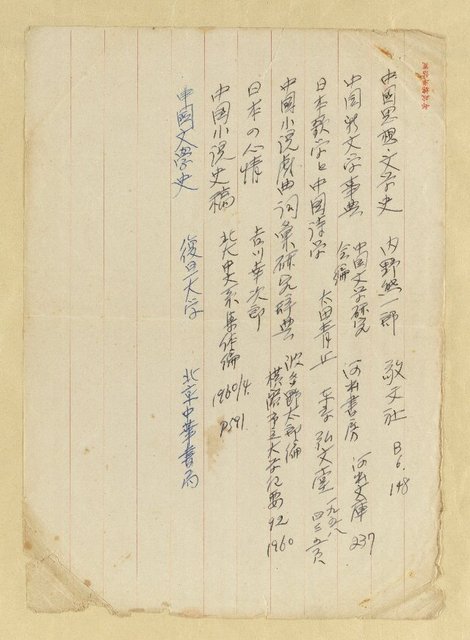 中國思想・文学史　内野熊一郎　敬文社　B6.148
中国新文学事典　中国文学研究会編　河出書房　河出文庫 237
日本歌学と中国詩学　太田青丘　東京 弘文堂　一九五八 四三五頁
中國小説戯曲詞彙研究辞典　波多野太郎編　横浜市立大学紀要 92 1960
日本の心情　吉川幸次郎
中国小説史稿　北大中文系集体編　1960/4. P591.
中國文學史　復旦大学　北京中華書局